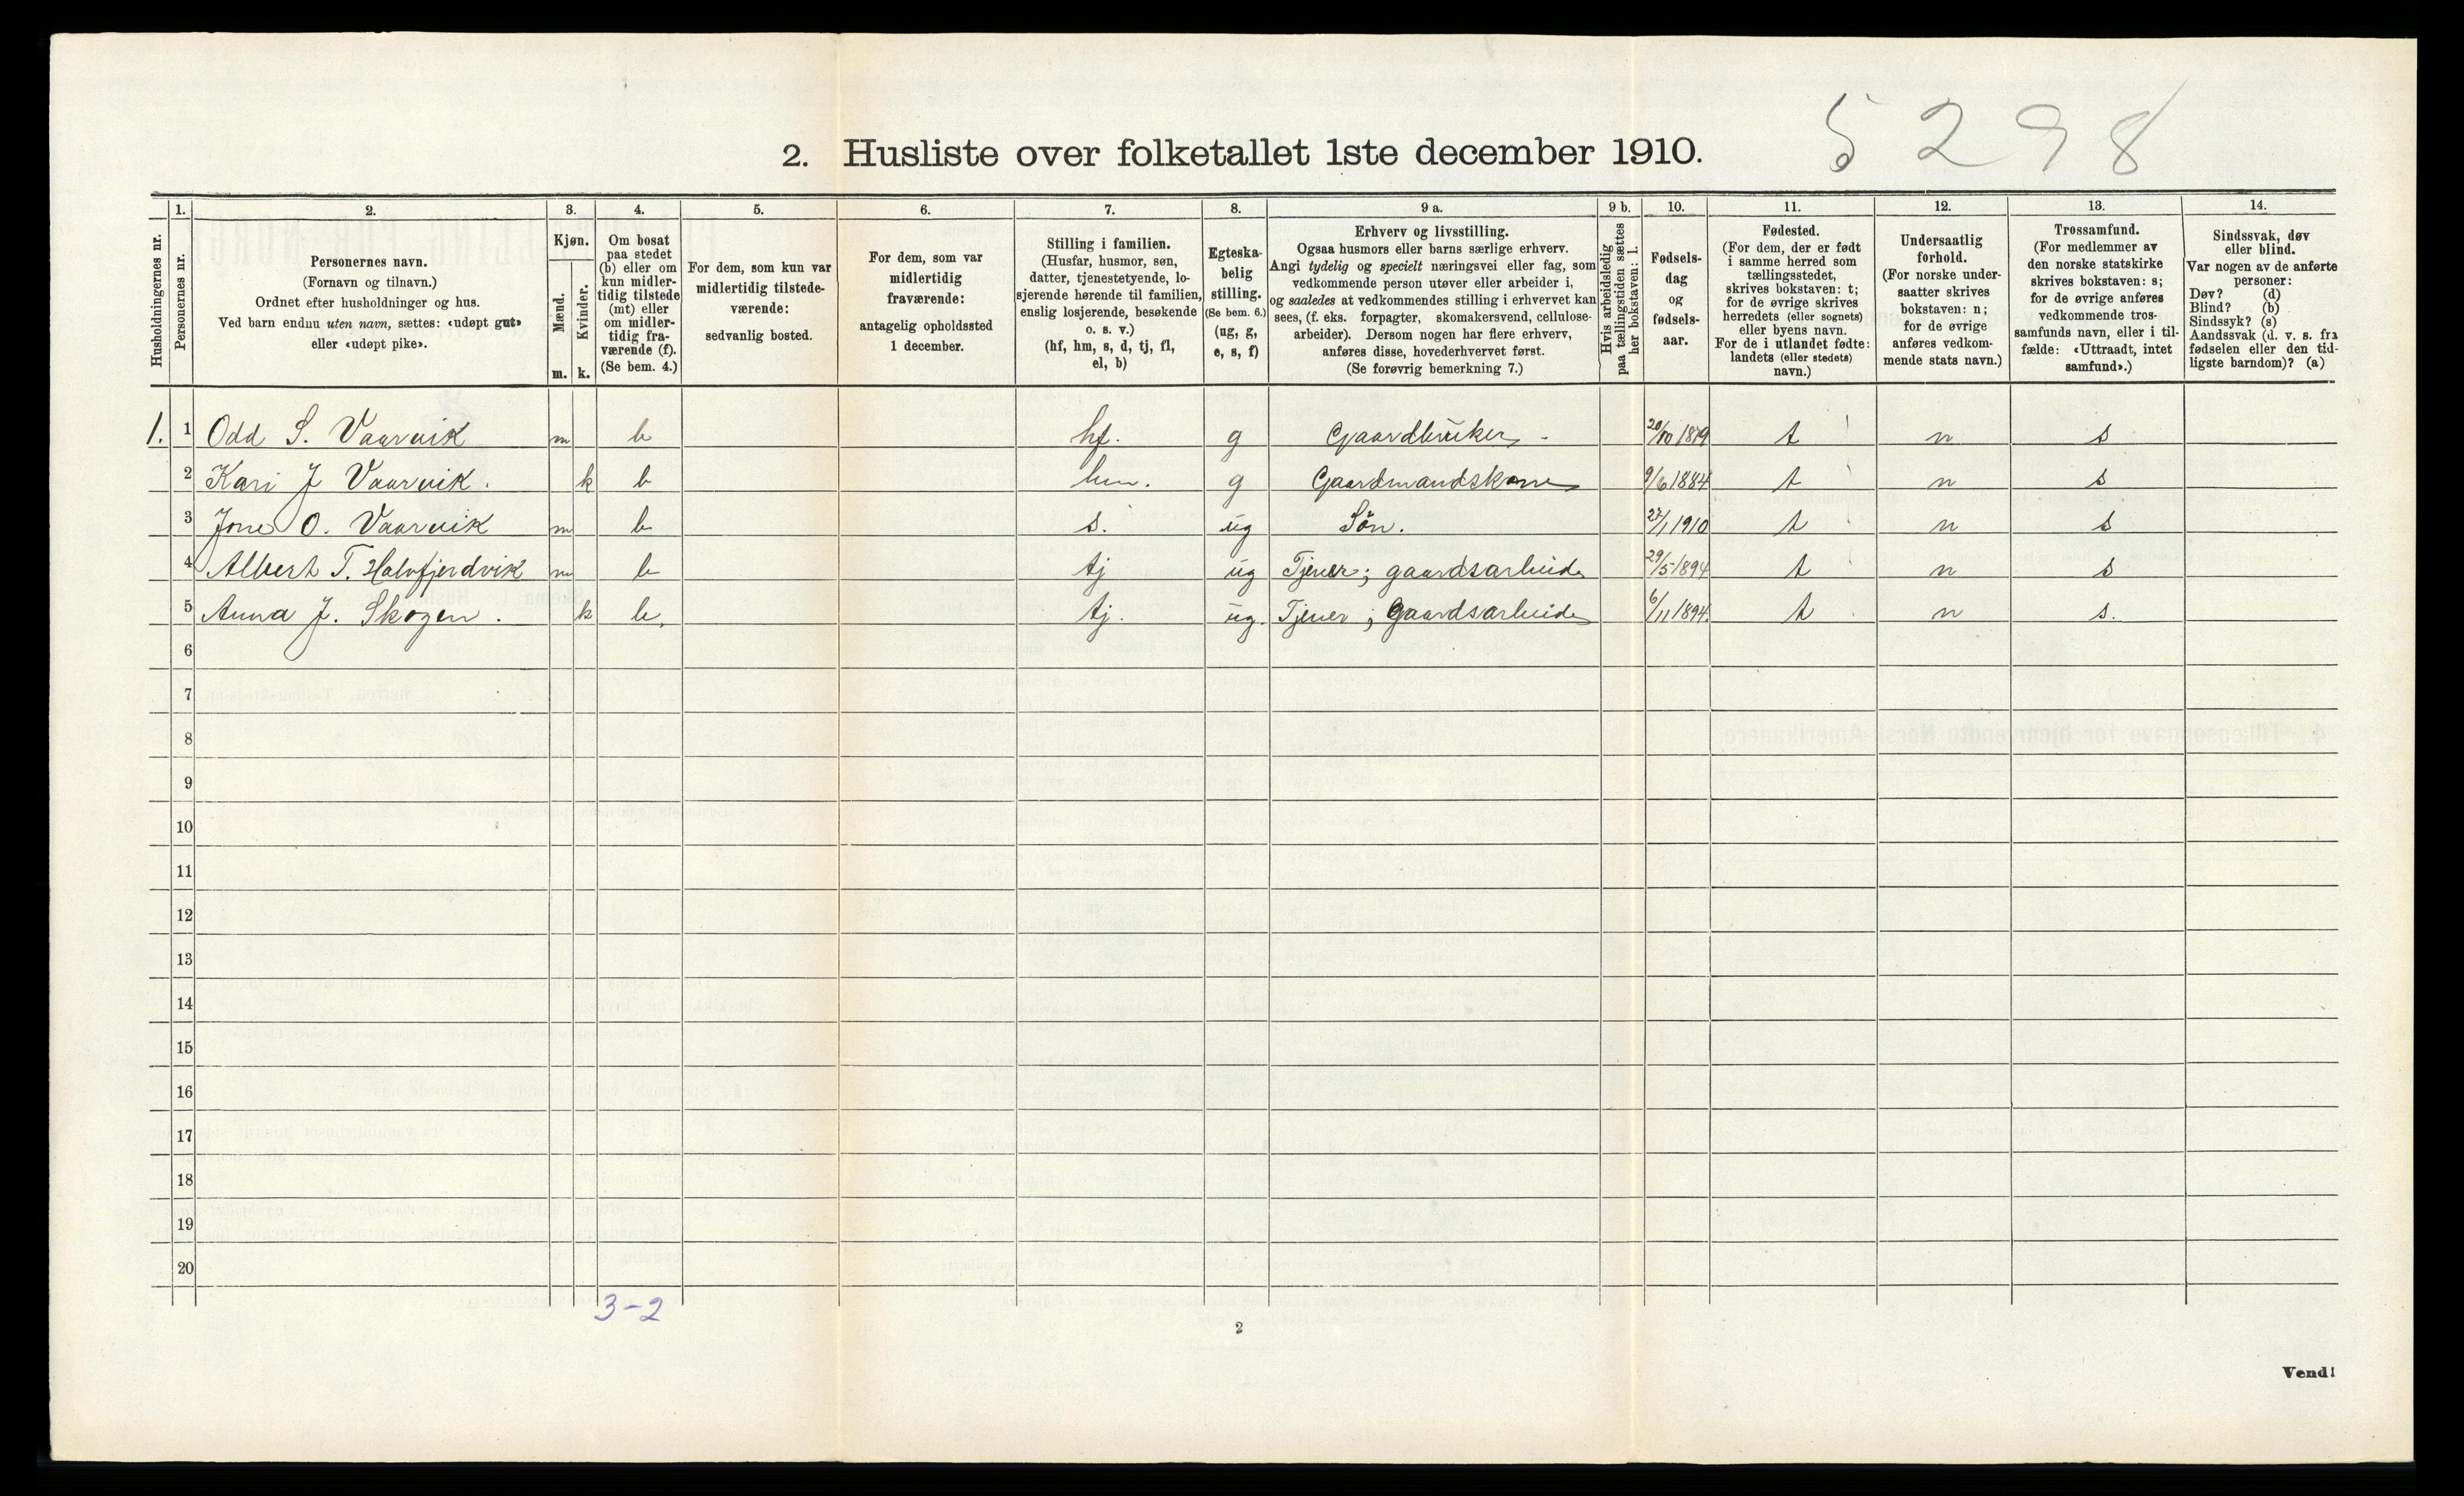 5298
2. Husliste over folketallet 1ste december 1910.
Husholdningernes nr.
1.
Personernes nr.
2.
Personernes navn.
(Fornavn og tilnavn.)
Ordnet efter husholdninger og hus.
Ved barn endnu uten navn, sættes: «udøpt gut»
eller «udøpt pike».
3.
Kjøn.
Mænd.
Kvinder.
m. k.
4.
Om bosat
paa stedet
(b) eller om
kun midler-
tidig tilstede
(mt) eller
om midler-
tidig fra-
værende (f).
(Se bem. 4.)
5.
For dem, som kun var
midlertidig tilstede-
værende:
sedvanlig bosted.
6.
For dem, som var
midlertidig
fraværende:
antagelig opholdssted
1 december.
7.
Stilling i familien.
(Husfar, husmor, søn,
datter, tjenestetyende, lo-
sjerende hørende til familien,
enslig losjerende, besøkende
o. s. v.)
(hf, hm, s, d, tj, fl,
el, b)
8.
Egteska-
belig
stilling.
(Se bem. 6.)
(ug, g,
e, s, f)
9 a.
Erhverv og livsstilling.
Ogsaa husmors eller barns særlige erhverv.
Angi tydelig og specielt næringsvei eller fag, som
vedkommende person utøver eller arbeider i,
og saaledes at vedkommendes stilling i erhvervet kan
sees, (f. eks. forpagter, skomakersvend, cellulose-
arbeider). Dersom nogen har flere erhverv,
anføres disse, hovederhvervet først.
(Se forøvrig bemerkning 7.)
9 b.
Hvis arbeidsledig
paa tællingstiden sættes
her bokstaven: l.
10.
Fødsels-
dag
og
fødsels-
aar.
11.
Fødested.
(For dem, der er født
i samme herred som
tællingsstedet,
skrives bokstaven: t;
for de øvrige skrives
herredets (eller sognets)
eller byens navn.
For de i utlandet fødte:
landets (eller stedets)
navn.)
12.
Undersaatlig
forhold.
(For norske under-
saatter skrives
bokstaven: n;
for de øvrige
anføres vedkom-
mende stats navn.)
13.
Trossamfund.
(For medlemmer av
den norske statskirke
skrives bokstaven: s;
for de øvrige anføres
vedkommende tros-
samfunds navn, eller i til-
fælde: «Uttraadt, intet
samfund».)
14.
Sindssvak, døv
eller blind.
Var nogen av de anførte
personer:
Døv? (d)
Blind? (b)
Sindssyk? (s)
Aandssvak (d. v. s. fra
fødselen eller den tid-
ligste barndom)? (a)
1. 1 Odd S. Vaarvik m b hf. g Gaardbruker - 20/10 1879 t n s
2 Kari J Vaarvik. k b hm. g Gaardmandskone 9/6 1884 t n s
3 Jone O. Vaarvik m b s. ug Søn. 27/1 1910 t n s
4 Albert T. Halvfjerdvik m b tj ug Tjener; gaardsarbeide 29/5 1894 t n s
5 Anna J. Skogen. k b. tj. ug. Tjener; Gaardsarbeide 6/11 1894. t n s.
6
7
8
9
10
11
12
13
14
15
16
17
18
19
20
3-2
2
Vend!